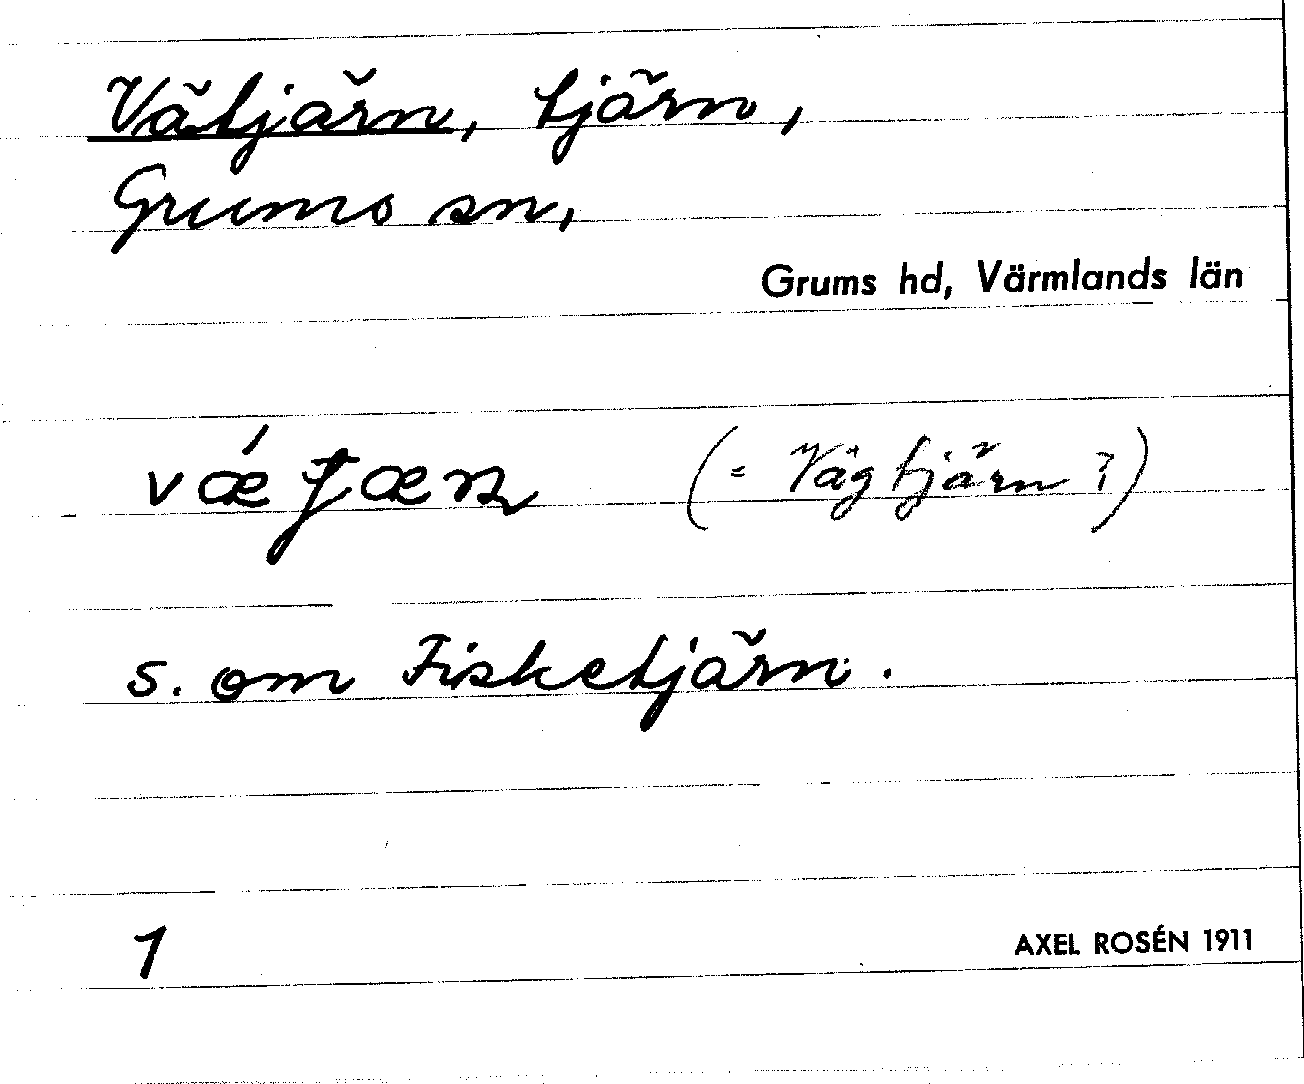 Vätjärn, tjärn,
Grums sn,
Grums hd, Värmlands län
vǽʈæɳ (= Vägtjärn?)
s. om Fisketjärn.
1
AXEL ROSÉN 1911